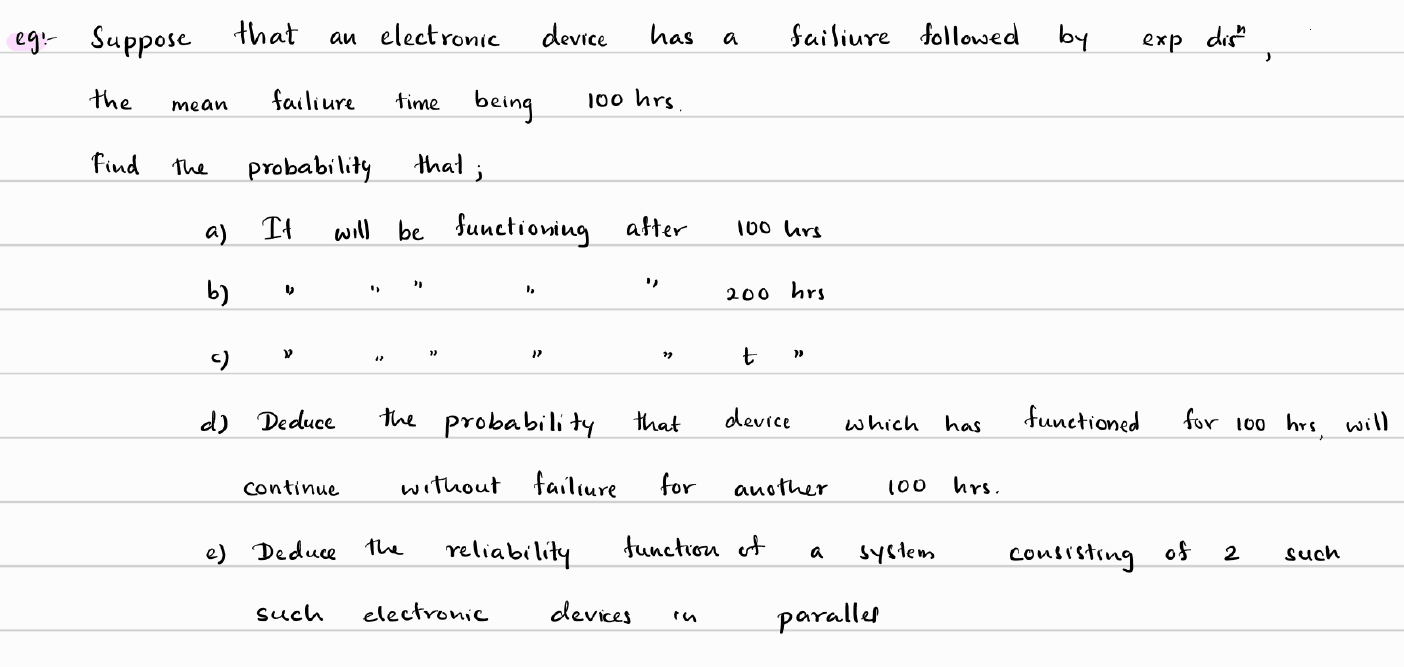 eg:- Suppose that an electronic device has a failiure followed by exp disⁿ,
the mean failiure time being 100 hrs.
Find the probability that;
a) It will be functioning after 100 hrs
b) " " " " " 200 hrs
c) " " " " " t "
d) Deduce the probability that device which has functioned for 100 hrs, will
continue without failiure for another 100 hrs.
e) Deduce the reliability function of a system consisting of 2 such
such electronic devices in parallel